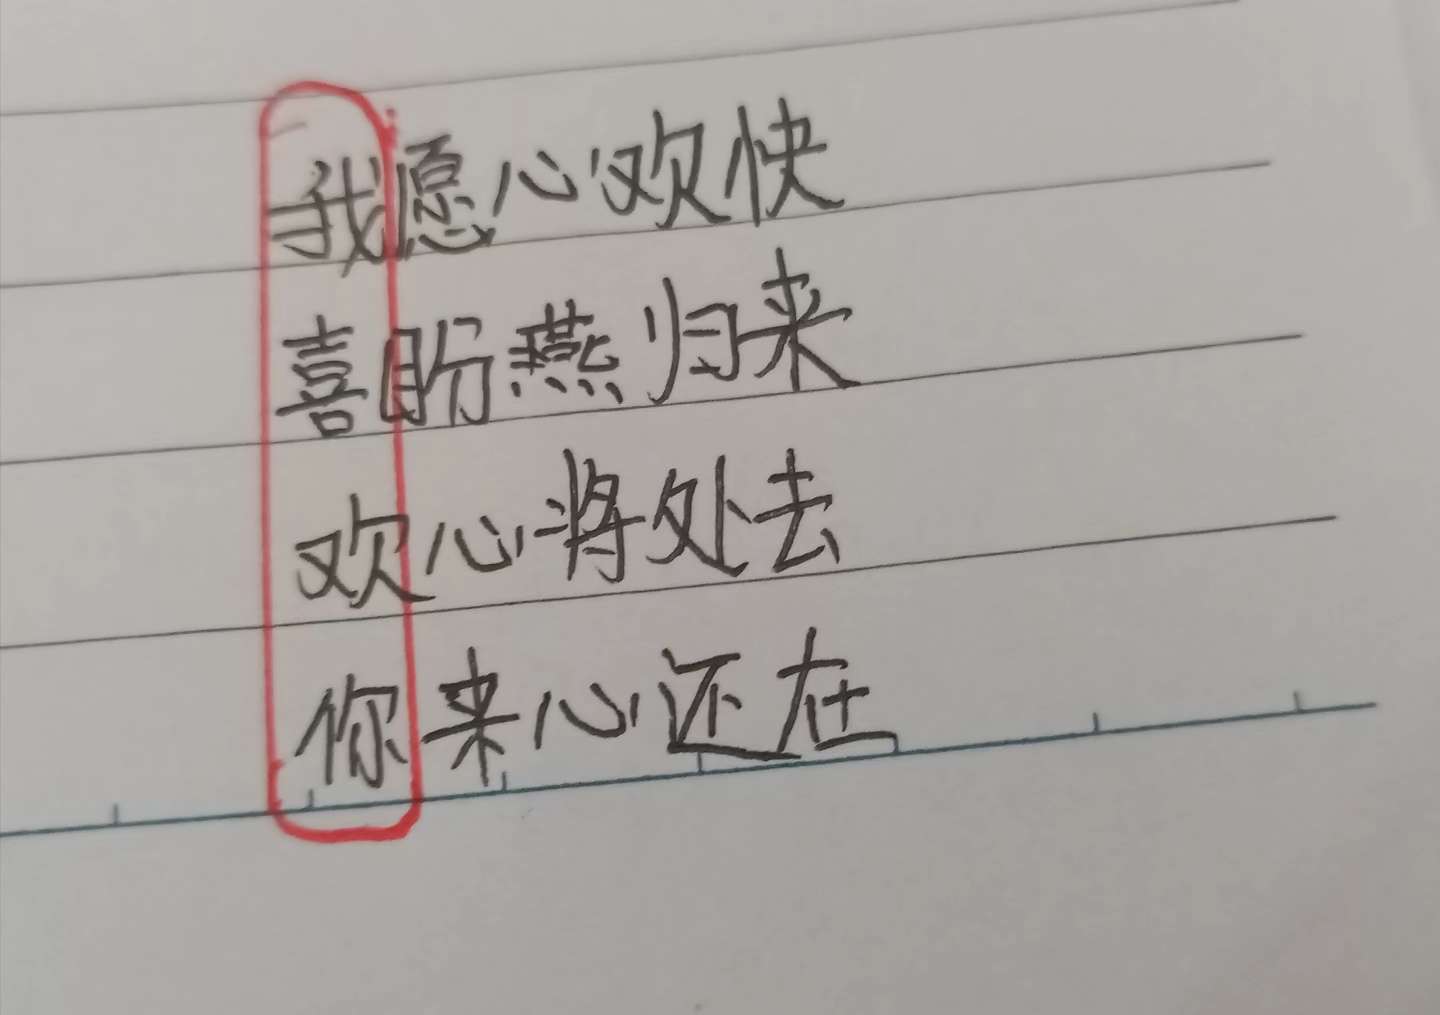 我愿心欢快
喜盼燕归来
欢心将处去
你来心还在